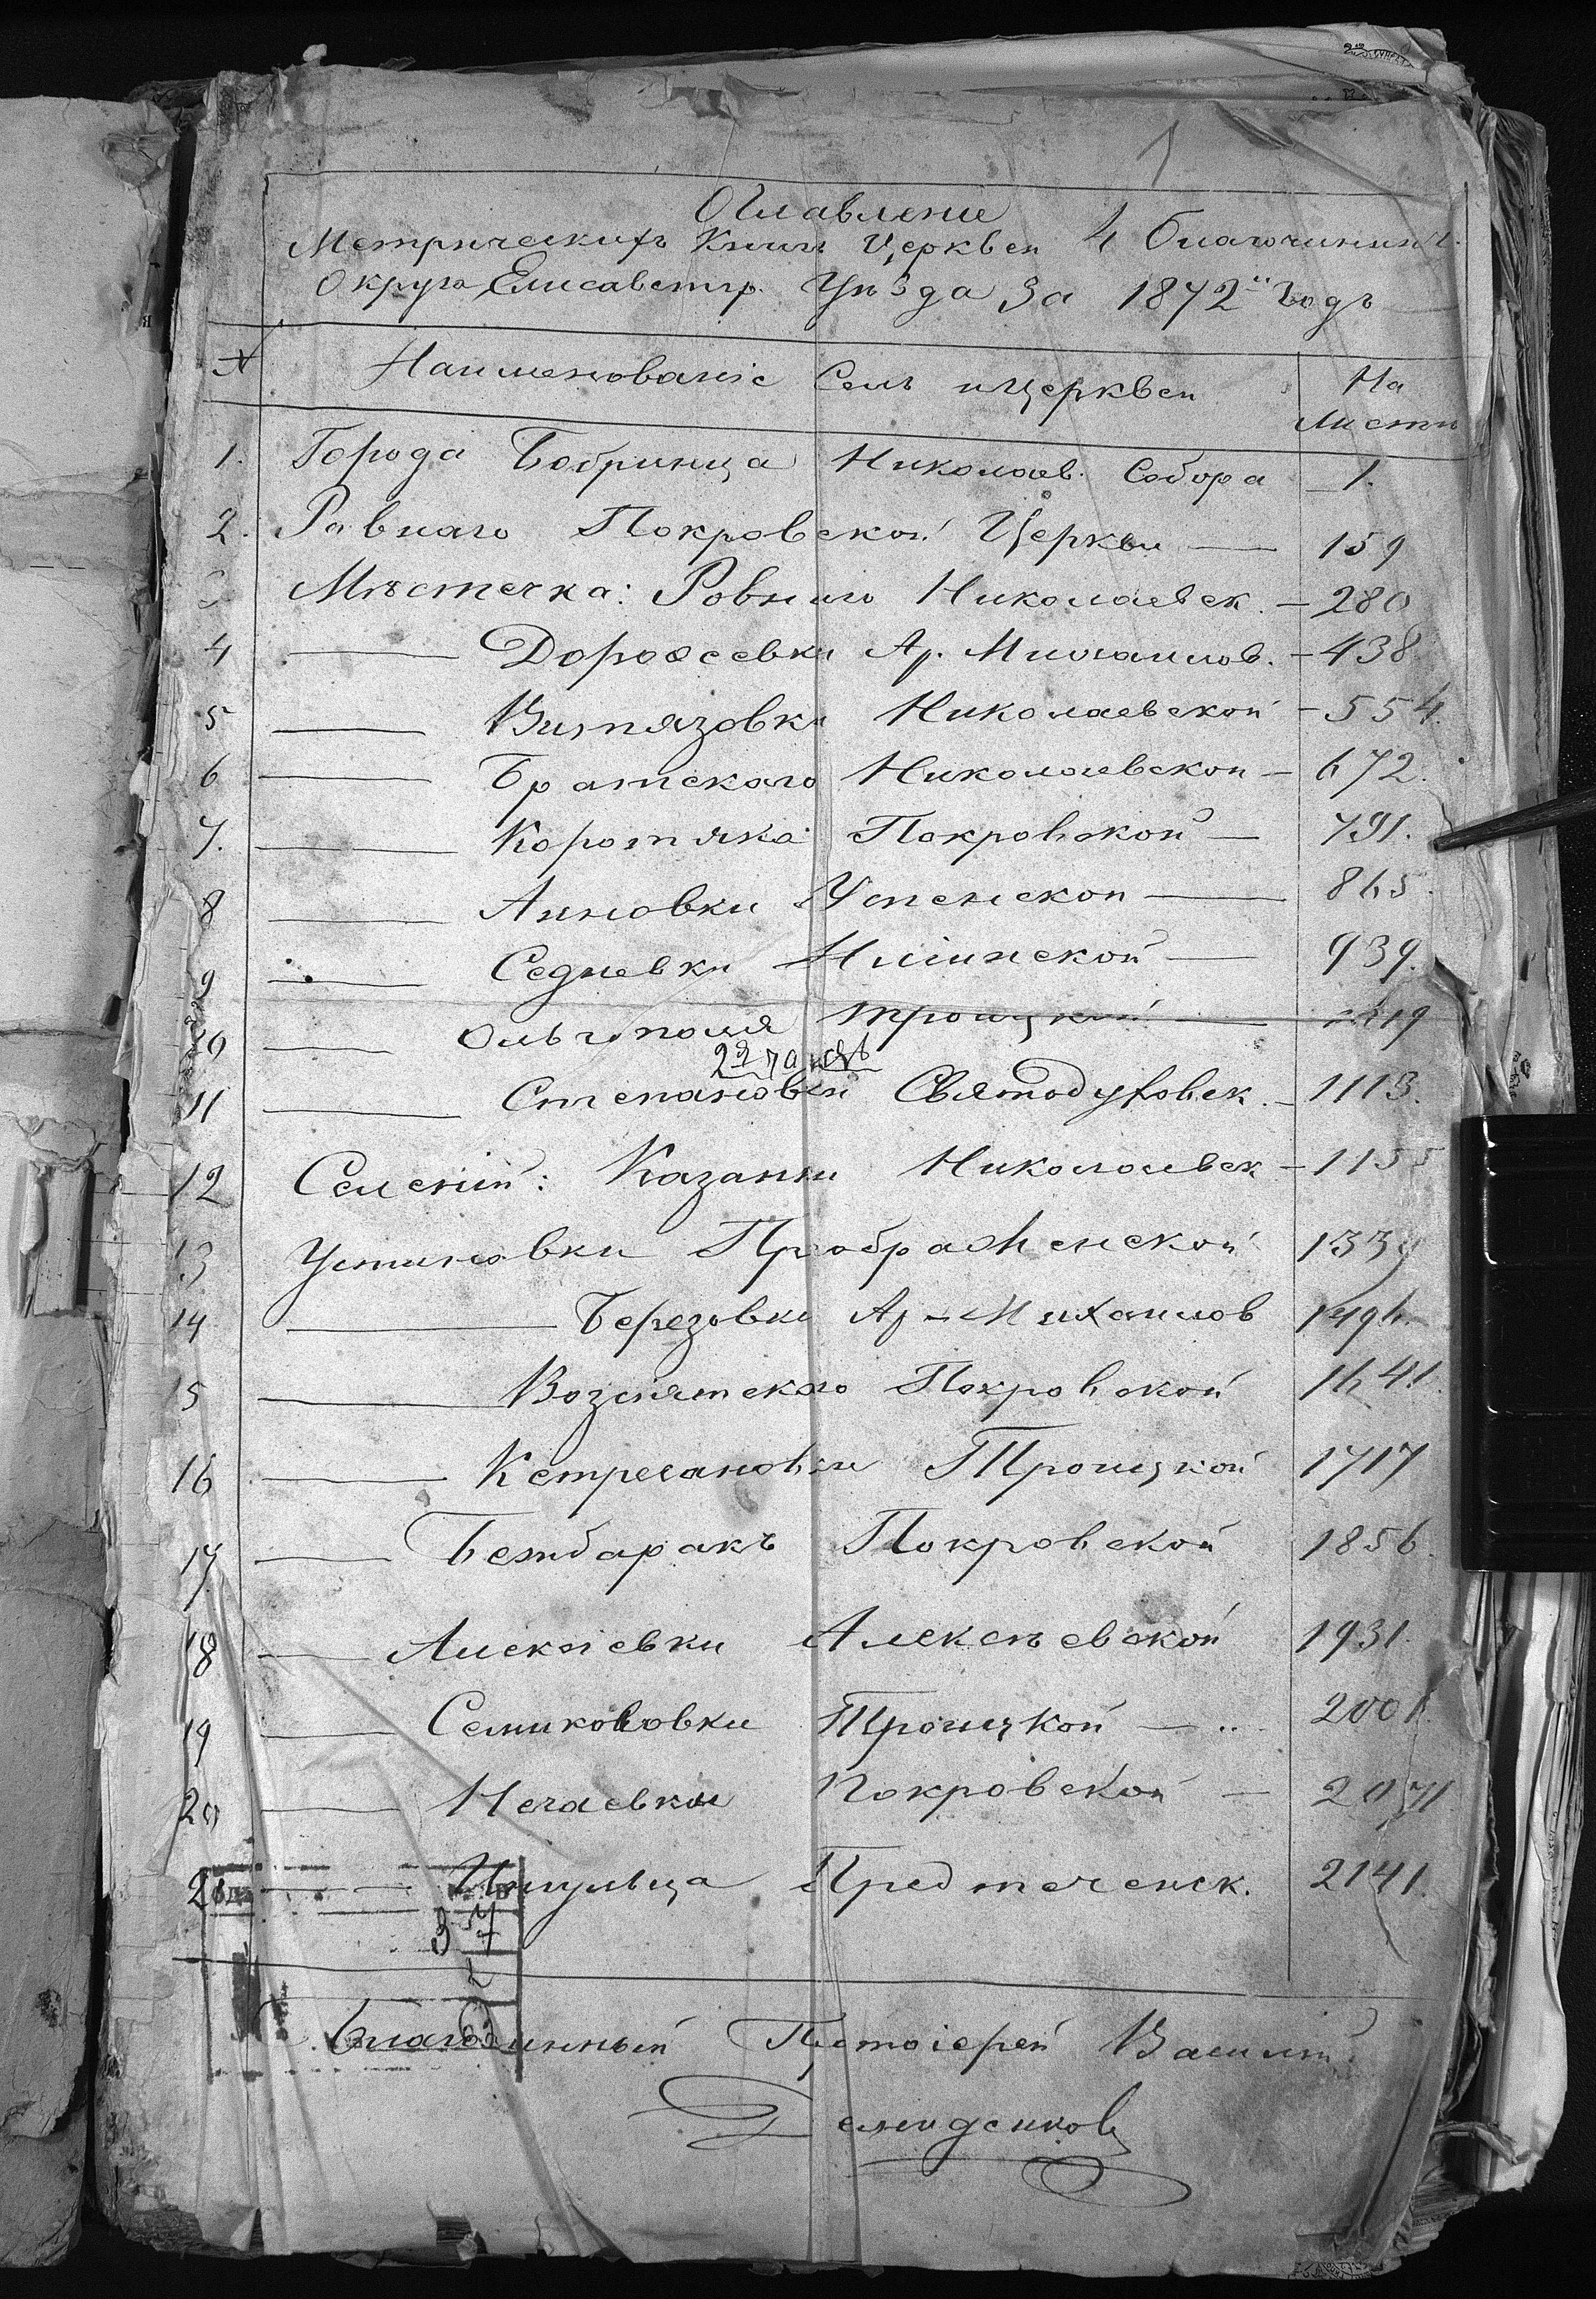 1
Оглавленіе
Метрическихъ Книгъ Церквей 4 Благочинич.
Округа Елисаветгр. Уѣзда За 1872й Годъ
№ Наименованіе Селъ и Церквей На Листѣ
1. Города Бобринца Николаев. Собора — 1.
2. Ровнаго Покровской Церкви — 159
Мѣстечка: Ровнаго Николаевск. — 280
4 — Дорожевки Ар. Михаилов. — 438
5 — Витязовки Николаевской — 554.
6 — Братскаго Николаевской — 672.
7. — Коротяка Покровской — 791.
8 — Анновки Успенской — 865.
9 — Седневки Иліинской — 939.
10 — Ольгополя Троицкой — 1019
22
11 — Степановки Святодуховск. — 1113.
12 Селеній: Казанки Николаевск — 1155
13 Устиновки Преображенской 1339
14 — Березовки Ар-Михаилов 1496.
15 — Вознятскаго Покровской 1641.
16 — Кетресановки Троицкой 1717
17 — Бешбаракъ Покровской 1856.
18 — Алексіевки Алексѣевской 1931.
19 — Семикововки Троицкой — 2001.
20 — Нечаевки Покровской — 2071
21 — Ингульца Предтеченск. 2141.
37
2
Благочинный Протоіерей Василій